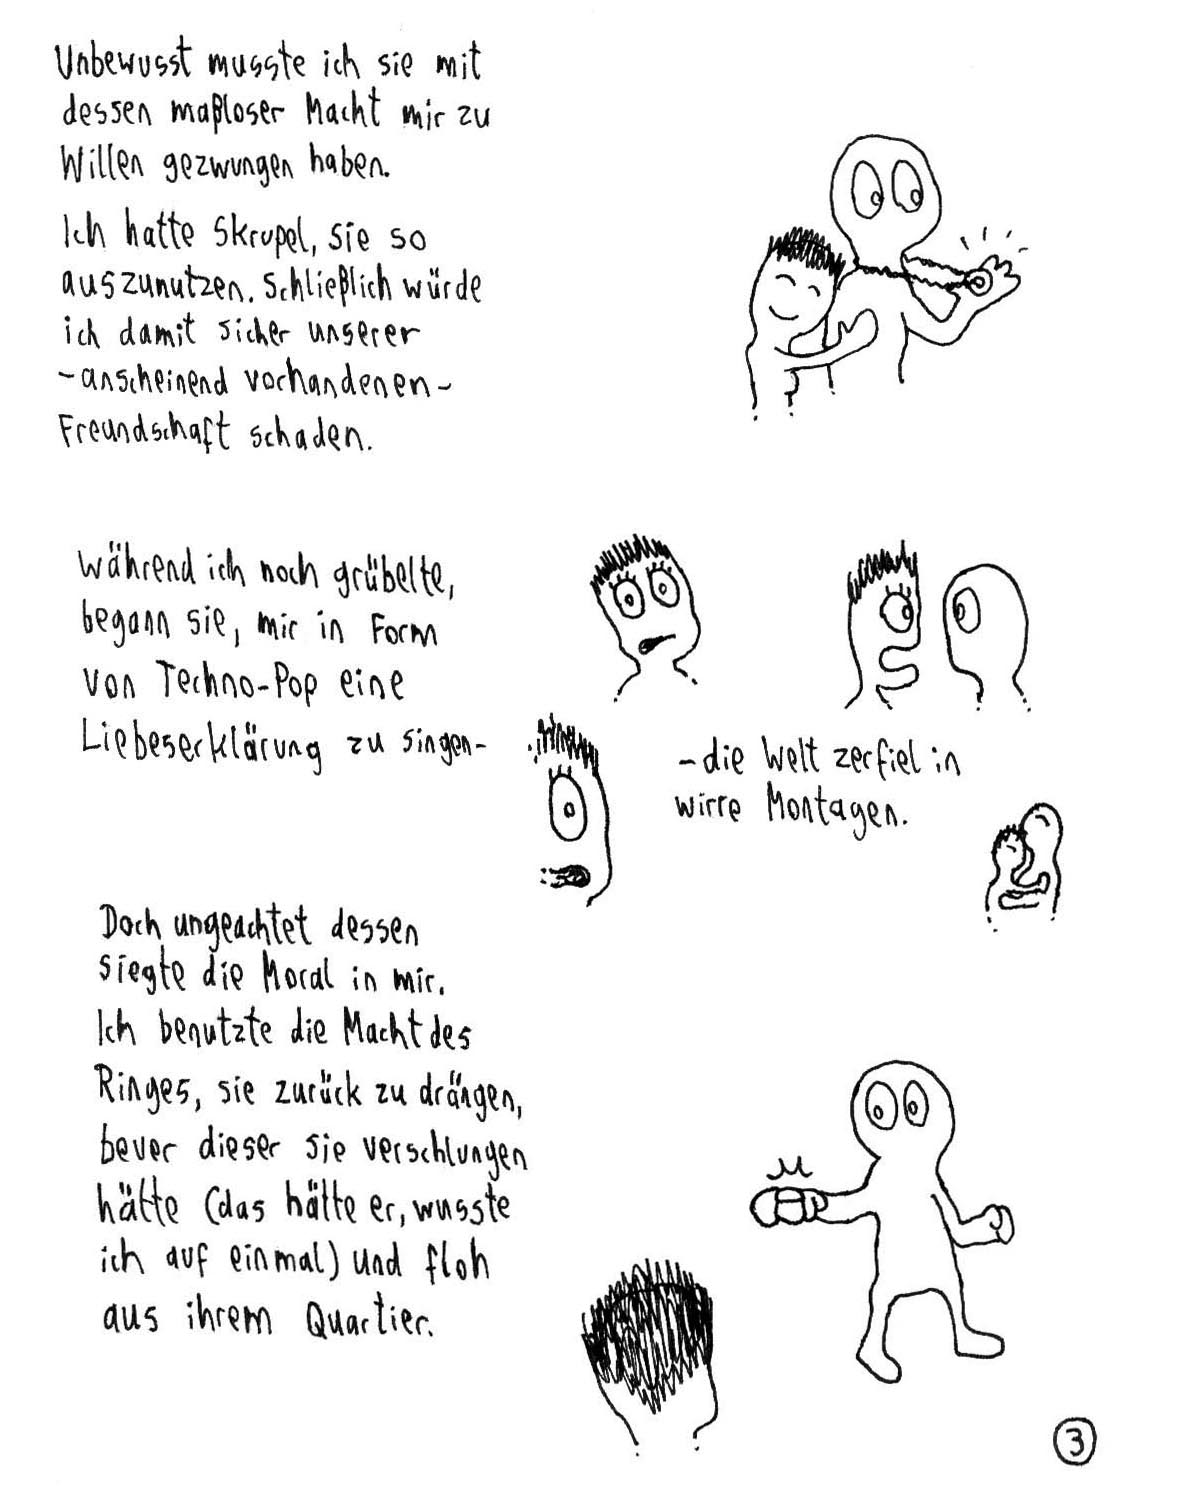 Unbewusst musste ich sie mit
dessen maßloser Macht mir zu
Willen gezwungen haben.
Ich hatte Skrupel, sie so
auszunutzen. Schließlich würde
ich damit sicher unserer
-anscheinend vorhandenen-
Freundschaft schaden.
Während ich noch grübelte,
begann sie, mir in Form
von Techno-Pop eine
Liebeserklärung zu singen-
-die Welt zerfiel in
wirre Montagen.
Doch ungeachtet dessen
siegte die Moral in mir.
Ich benutzte die Macht des
Ringes, sie zurück zu drängen,
bever dieser sie verschlungen
hätte (das hätte er, wusste
ich auf einmal) und floh
aus ihrem Quartier.
3